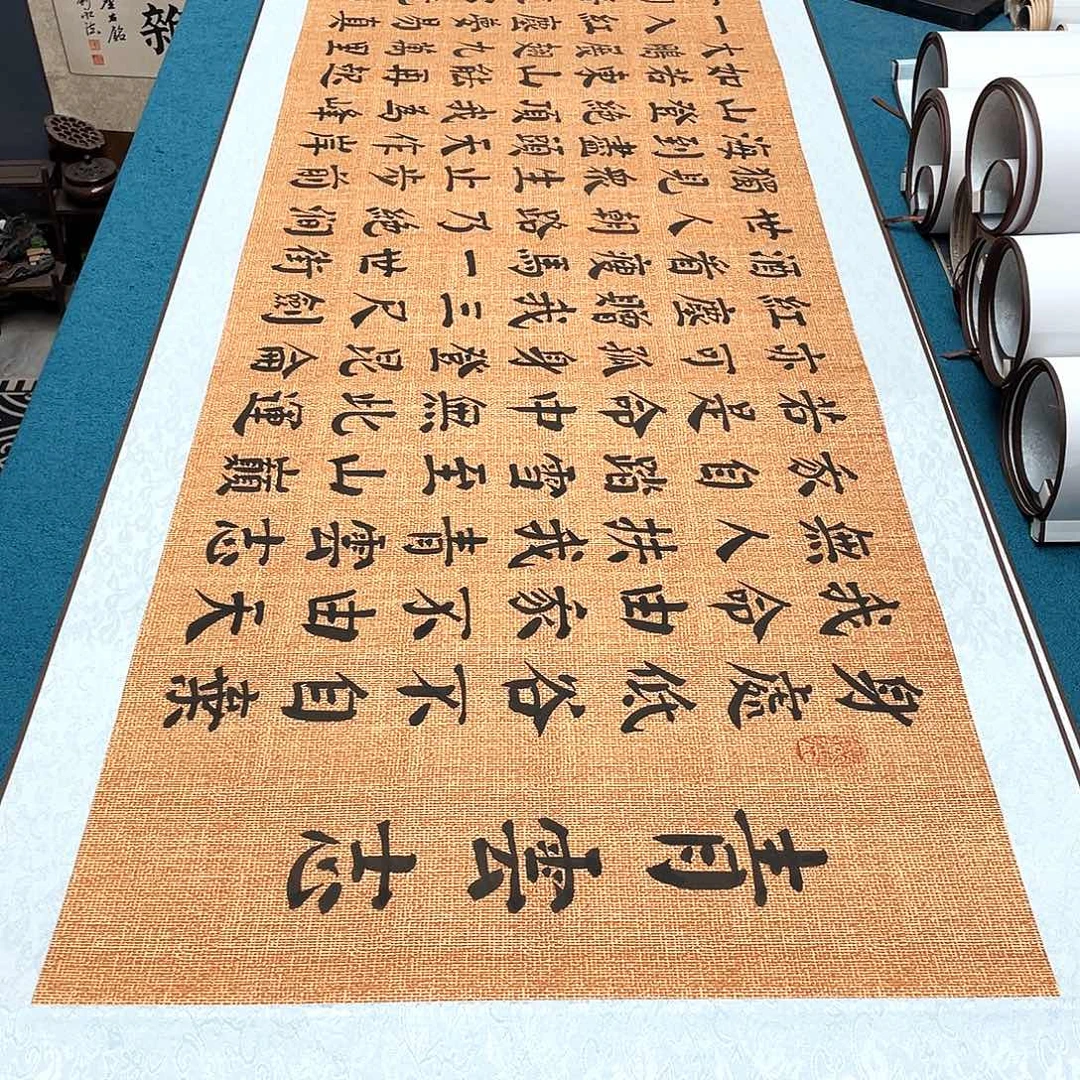 青雲志
身處低谷不自棄
我命由家不由天
無人扶我青雲志
自踏雪至山巔
若是命中無此運
亦可孤身登昆侖
紅塵贈我三尺劍
酒 瘦馬一世街
世人朝路乃絕澗
獨見眾生止步前
海到盡頭天作岸
山登絕頂我為峰
如若東山能再起
大鵬展翅九萬里
一入紅塵夢易真